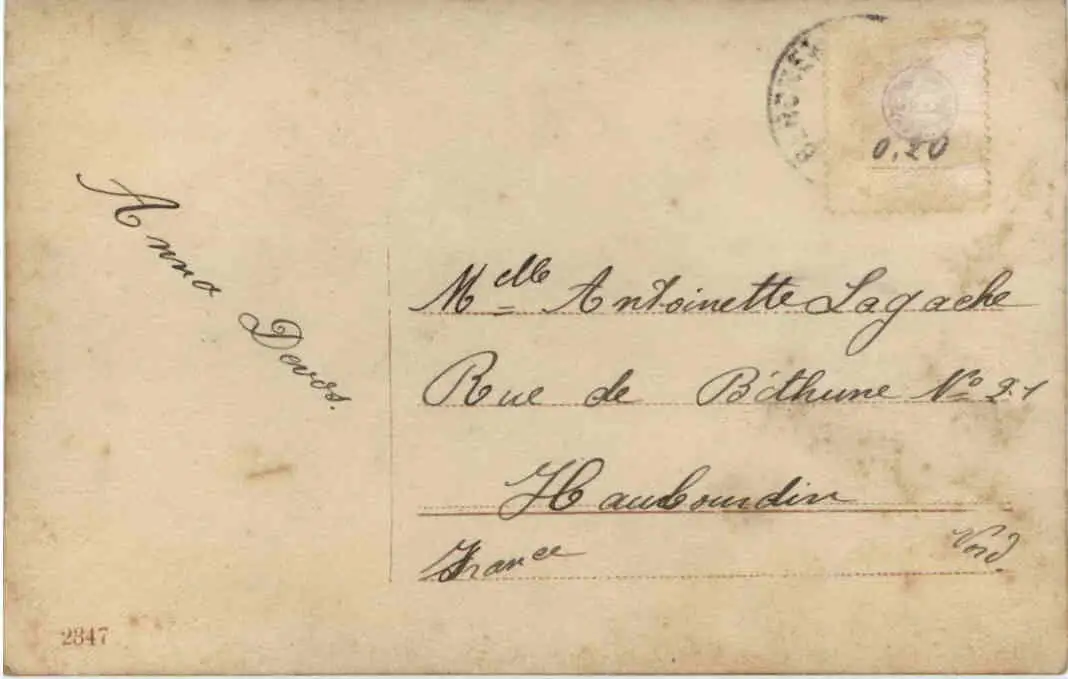 0,20
Anna Devos.
Melle Antoinette Lagache
Rue de Béthune No 21
Haubourdin
France Nord
2347